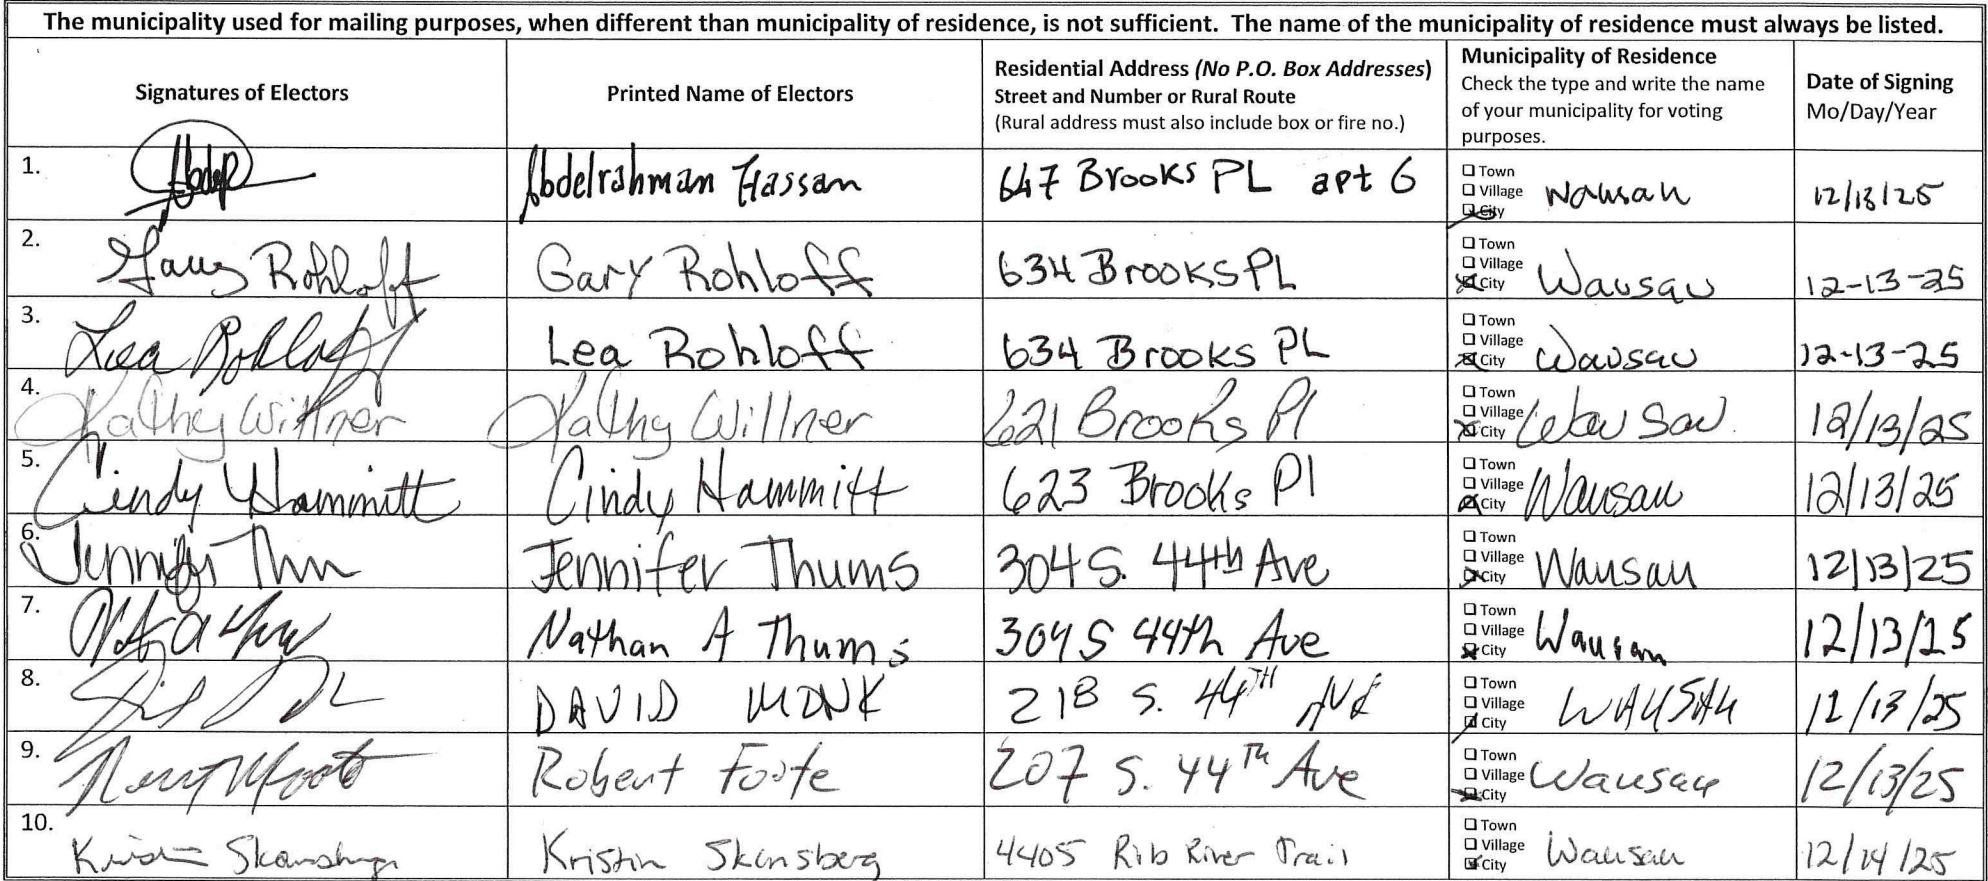 The municipality used for mailing purposes, when different than municipality of residence, is not sufficient. The name of the municipality of residence must always be listed.
Signatures of Electors
Printed Name of Electors
Residential Address (No P.O. Box Addresses)
Street and Number or Rural Route
(Rural address must also include box or fire no.)
Municipality of Residence
Check the type and write the name
of your municipality for voting
purposes.
Date of Signing
Mo/Day/Year
1. Abdelrahman Hassan 647 Brooks PL apt 6 Town Village City Wausau 12/13/25
2. Gary Rohloff Gary Rohloff 634 Brooks PL Town Village City Wausau 12-13-25
3. Lea Rohloff Lea Rohloff 634 Brooks PL Town Village City Wausau 12-13-25
4. Kathy Willner Kathy Willner 621 Brooks Pl Town Village City Wausau 12/13/25
5. Cindy Hammitt Cindy Hammitt 623 Brooks Pl Town Village City Wausau 12/13/25
6. Jennifer Jennifer Thums 304 S. 44th Ave Town Village City Wausau 12/13/25
7. Nathan A Thums 304 S 44th Ave Town Village City Wausau 12/13/25
8. DAVID MONK 218 S. 44TH AVE Town Village City WAUSAU 12/13/25
9. Robert Foote 207 S. 44Th Ave Town Village City Wausau 12/13/25
10. Kristin Skansberg 4405 Rib River Trail Town Village City Wausau 12/14/25